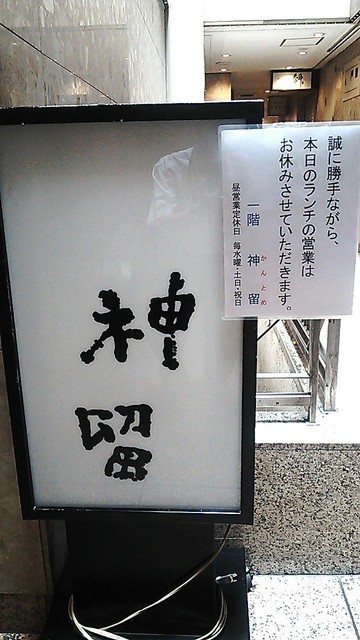 誠に勝手ながら、
本日のランチの営業は
お休みさせていただきます。
一階 神留
かんとめ
昼営業定休日 毎水曜・土日・祝日
神留